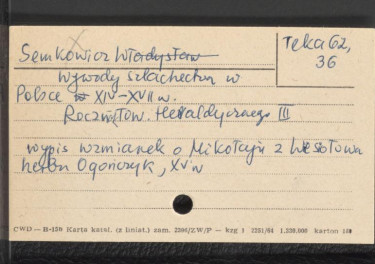 Semkowicz Władysław
Teka 62,
36
Wywody szlachectwa w
Polsce w XIV-XVII w.
Roczn. Tow. Heraldycznego III
wypis wzmianek o Mikołaju z Wesołowa
herbu Ogończyk, XV w
CWD — B-159 Karta katal. (z liniat.) zam. 2266/ZW/P — kzg 1 1231/64 1.330.000 karton 180